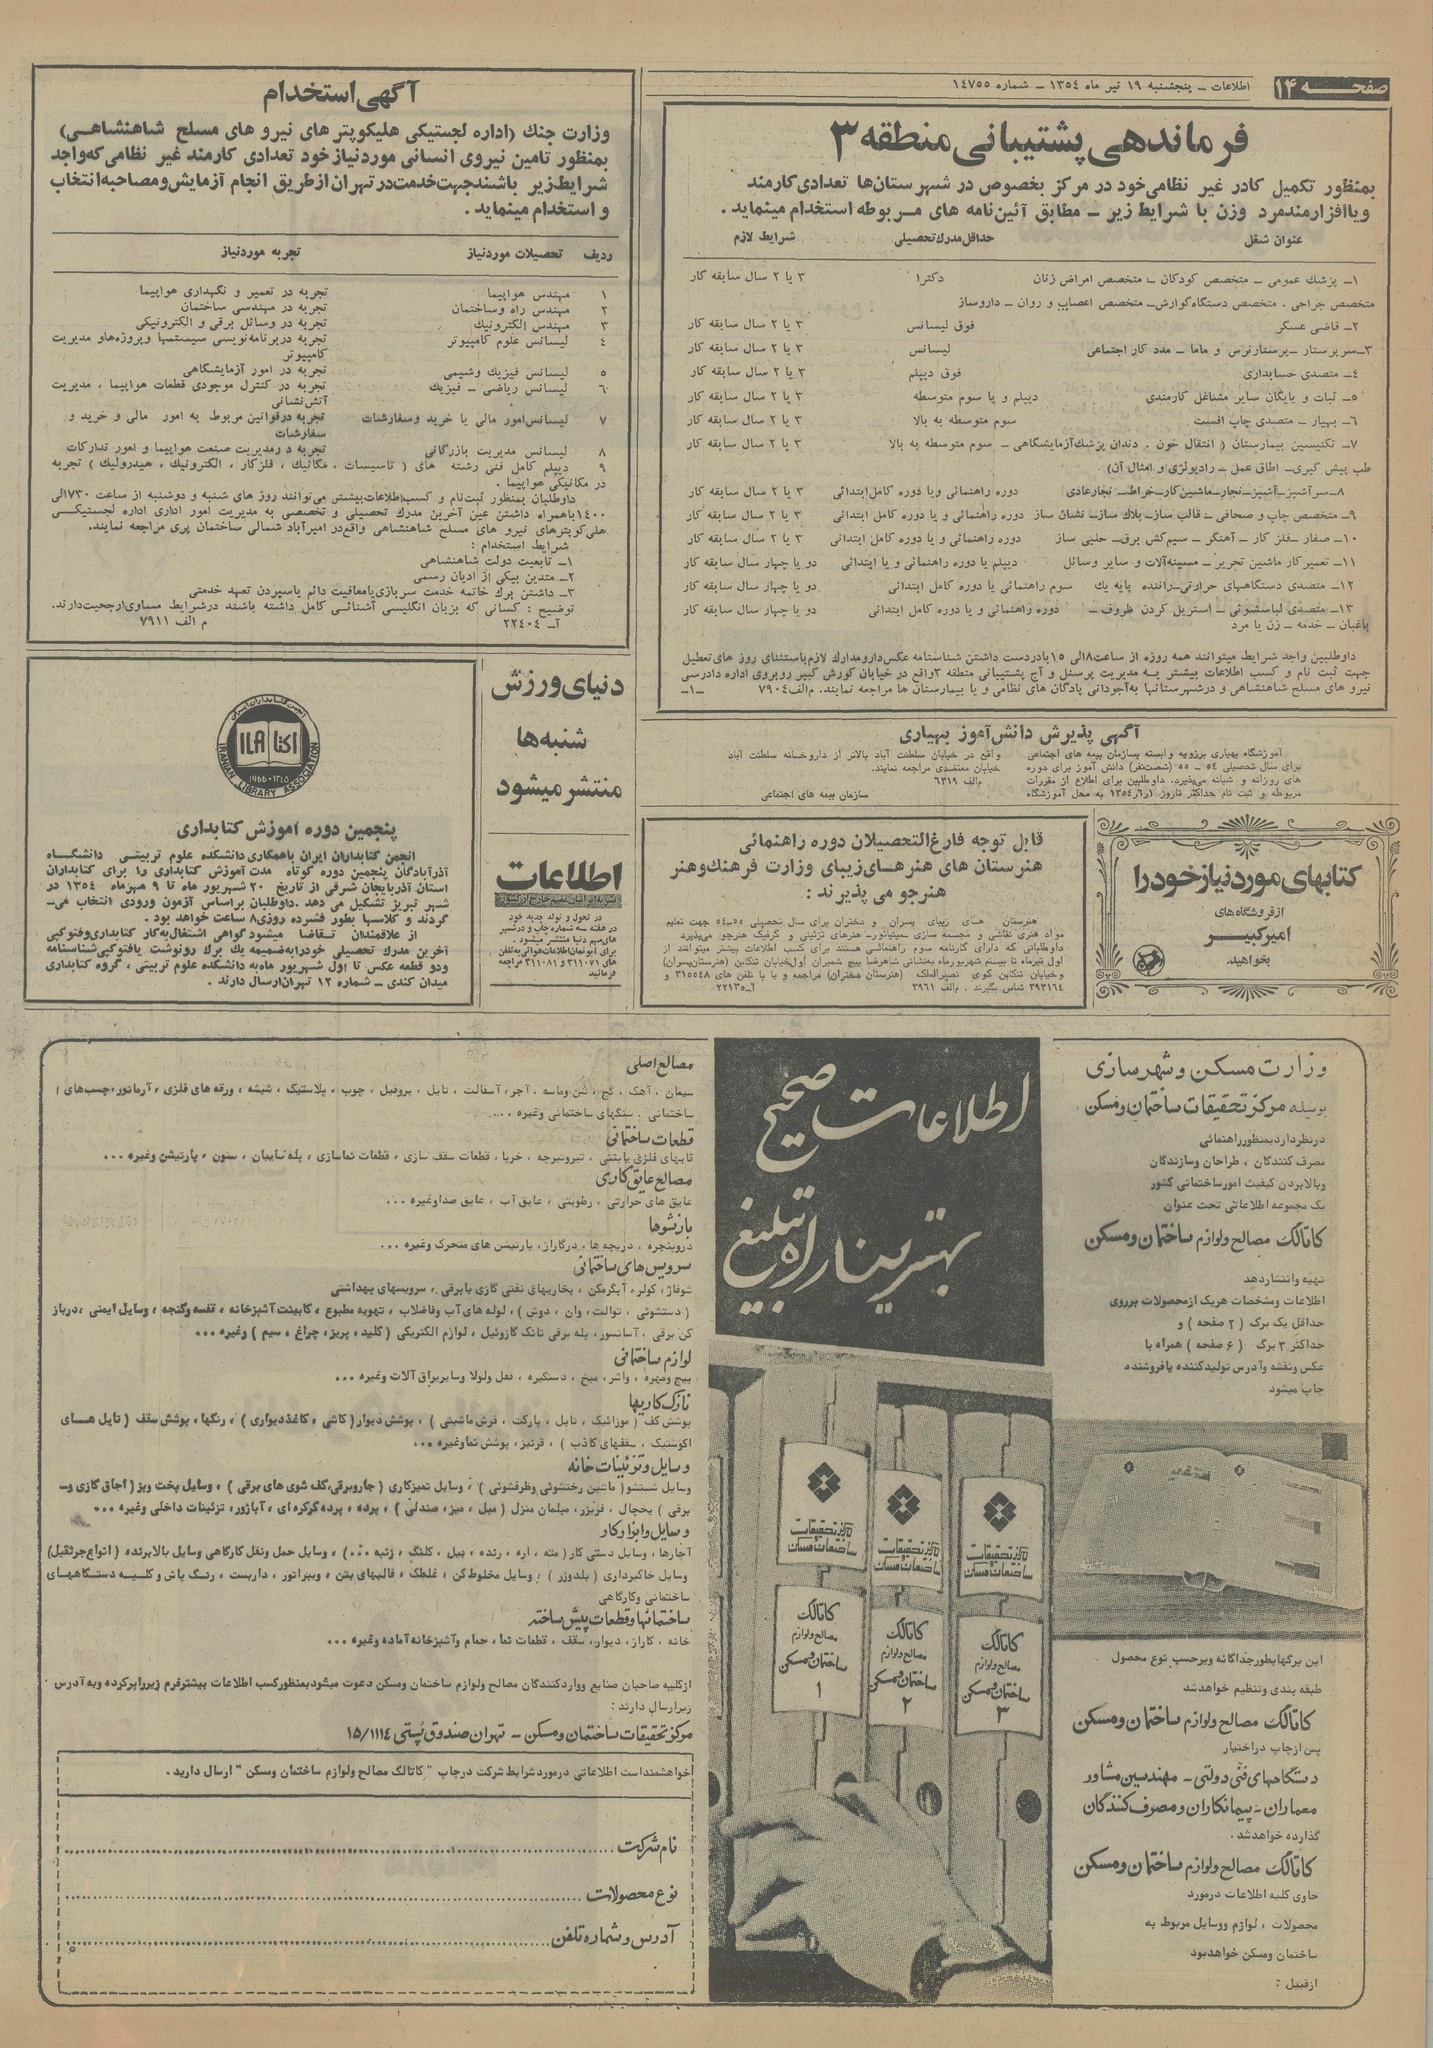 صفحه ۱۴
اطلاعات ـ پنجشنبه ۱۹ تیر ماه ۱۳۵۴ ـ شماره ۱۴۷۵۵
فرماندهی پشتیبانی منطقه ۳
بمنظور تکمیل کادر غیر نظامی خود در مرکز بخصوص در شهرستان‌ها تعدادی کارمند
ویاافزارمندمرد وزن با شرایط زیر ـ مطابق آئین‌نامه های مربوطه استخدام مینماید .
عنوان شغل حداقل‌مدرك‌تحصیلی شرایط لازم
۱ـ پزشك عمومی ـ متخصص كودكان ـ متخصص امراض زنان دكترا ۳ یا ۲ سال سابقه كار
متخصص جراحی . متخصص دستگاه‌گوارش‌ـ متخصص اعصاب و روان ـ داروساز
۲ـ قاضی عسگر فوق لیسانس ۳ یا ۲ سال سابقه كار
۳ـ‌سرپرستار ـ‌پرستارنرس و ماما ـ مدد كار اجتماعی لیسانس ۳ یا ۲ سال سابقه كار
۴ـ متصدی حسابداری فوق دیپلم ۳ یا ۲ سال سابقه كار
۵ـ ثبات و بایگان سایر مشاغل كارمندی دیپلم و یا سوم متوسطه ۳ یا ۲ سال سابقه كار
۶ـ بهیار ـ متصدی چاپ افست سوم متوسطه به بالا ۳ یا ۲ سال سابقه كار
۷ـ تكنیسین بیمارستان ( انتقال خون . دندان پزشك‌آزمایشگاهی ـ سوم متوسطه به بالا ۳ یا ۲ سال سابقه كار
طب پیش گیری‌ـ اطاق عمل ـ رادیولژی و امثال آن)
۸ـ‌سرآشپز‌ـ‌آشپز‌ـ‌نجار‌ـ‌ماشین‌كار‌ـ‌خراط‌ـ نجارعادی دوره راهنمائی ویا دوره كامل‌ابتدائی ۳ یا ۲ سال سابقه كار
۹ـ متخصص چاپ و صحافی ـ قالب ساز‌ـ بلاك ساز‌ـ نشان ساز دوره راهنمائی و یا دوره كامل ابتدائی ۳ یا ۲ سال سابقه كار
۱۰ـ صفار ـ‌فلز كار ـ آهنگر ـ سیم‌كش برق‌ـ حلبی ساز دوره راهنمائی و یا دوره كامل ابتدائی ۳ یا ۲ سال سابقه كار
۱۱ـ تعمیركار ماشین تحریر ـ آلات و سایر وسائل دیپلم یا دوره راهنمائی و یا ابتدائی دو یا چهار سال سابقه كار
۱۲ـ متصدی دستگاههای حرارتی‌ـ راننده پایه یك سوم راهنمائی یا دوره كامل ابتدائی دو یا چهار سال سابقه كار
۱۳ـ متصدی لباسشوئی ـ استریل كردن ظروف ـ دوره راهنمائی و یا دوره كامل ابتدائی دو یا چهار سال سابقه كار
باغبان ـ خدمه ـ زن یا مرد
داوطلبین واجد شرایط میتوانند همه روزه از ساعت۸الی ۱۵بادردست داشتن شناسنامه عكس‌دارومدارك لازم‌باستثنای روز های‌تعطیل
جهت ثبت نام و كسب اطلاعات بیشتر به مدیریت پرسنل و آج پشتیبانی منطقه ۳واقع در خیابان كورش كبیر روبروی اداره دادرسی
نیرو های مسلح شاهنشاهی و درشهرستانها به‌آجودانی پادگان های نظامی و یا بیمارستان ها مراجعه نمایند. م‌الف۷۹۰۴ ـ۱ـ
آگهی استخدام
وزارت جنك (اداره لجستیکی هلیکوپتر های نیرو های مسلح شاهنشاهی)
بمنظور تامین نیروی انسانی موردنیاز خود تعدادی کارمند غیر نظامی که‌واجد
شرایط‌زیر باشندجهت‌خدمت‌درتهران‌ازطریق انجام آزمایش‌ومصاحبه‌انتخاب
و استخدام مینماید .
ردیف تحصیلات موردنیاز تجربه موردنیاز
۱ مهندس هواپیما تجربه در تعمیر و نگهداری هواپیما
۲ مهندس راه وساختمان تجربه در مهندسی ساختمان
۳ مهندس الكترونیك تجربه در وسائل برقی و الكترونیكی
۴ لیسانس علوم كامپیوتر تجربه دربرنامه‌نویسی سیستمها وپروژه‌هاو مدیریت
كامپیوتر
۵ لیسانس فیزیك وشیمی تجربه در امور آزمایشگاهی
۶ لیسانس ریاضی ـ فیزیك تجربه در كنترل موجودی قطعات هواپیما ، مدیریت
آتش‌نشانی
۷ لیسانس‌امور مالی یا خرید وسفارشات تجربه درقوانین مربوط به امور مالی و خرید و
سفارشات
۸ لیسانس مدیریت بازرگانی تجربه در‌مدیریت صنعت هواپیما و امور تداركات
۹ دیپلم كامل فنی رشته های ( تاسیسات ، مكانیك ، فلزكار ، الكترونیك ، هیدرولیك ) تجربه
در مكانیكی هواپیما .
داوطلبان بمنظور ثبت‌نام و كسب‌اطلاعات‌بیشتر می‌توانند روز های شنبه و دوشنبه از ساعت ۷۳۰الی
۱۴۰۰باهمراه داشتن عین آخرین مدرك تحصیلی و تخصصی به مدیریت امور اداری اداره لجستیكی
هلی‌كوپترهای نیرو های مسلح شاهنشاهی واقع‌در امیرآباد شمالی ساختمان پری مراجعه نمایند.
شرایط استخدام :
۱ـ تابعیت دولت شاهنشاهی
۲ـ متدین بیكی از ادیان رسمی
۳ـ داشتن برك خاتمه خدمت سربازی‌یامعافیت دائم یاسپردن تعهد خدمتی
توضیح : كسانی كه بزبان انگلیسی آشنائی كامل داشته باشند درشرایط مساوی‌ارجحیت‌دارند.
آـ ۲۲۴۰۴ م الف ۷۹۱۱
آگهی پذیرش دانش‌آموز بهیاری
آموزشگاه بهیاری برزویه وابسته بسازمان بیمه های اجتماعی
برای سال تحصیلی ۵۴ ـ ۵۵ (شصت‌نفر) دانش آموز برای دوره
های روزانه و شبانه می‌پذیرد، داوطلبین برای اطلاع از مقررات
مربوطه و ثبت نام حداكثر تاروز ۱ر۶ر۱۳۵۴ به محل آموزشگاه
واقع در خیابان سلطنت آباد بالاتر از داروخانه سلطنت آباد
خیابان معتضدی مراجعه نمایند.
م‌الف ۶۳۱۹
سازمان بیمه های اجتماعی
دنیای ورزش
شنبه‌ها
منتشر میشود
اطلاعات
در تحول و تولد جدید خود
در هفته سه شماره چاپ و درشهر
های‌مهم دنیا منتشر میشود.
برای آبونمان‌اطلاعات‌هوائی‌به‌تلفن
های ۳۱۱۰۷۱ و ۳۱۱۰۸۱ مراجعه
فرمائید
انجمن کتابداران ایران
اکتا ILA
۱۹۶۶ - ۱۳۴۵
IRANIAN LIBRARY ASSOCIATION
پنجمین دوره آموزش کتابداری
انجمن کتابداران ایران باهمکاری‌دانشکده علوم تربیتی دانشگاه
آذرآبادگان پنجمین دوره کوتاه مدت آموزش کتابداری را برای کتابداران
استان آذربایجان شرقی از تاریخ ۲۰ شهریور ماه تا ۹ مهرماه ۱۳۵۴ در
شهر تبریز تشکیل می دهد. داوطلبان براساس آزمون ورودی انتخاب می‌ـ
گردند و کلاسها بطور فشرده روزی۸ ساعت خواهد بود .
از علاقمندان تقاضا میشود گواهی اشتغال‌به‌کار کتابداری‌وفتوکپی
آخرین مدرک تحصیلی خودرابه‌ضمیمه یك برك رونوشت یافتوکپی‌شناسنامه
ودو قطعه عکس تا اول شهریور ماه‌به دانشکده علوم تربیتی ، گروه کتابداری
میدان کندی ـ شماره ۱۲ تهران‌ارسال دارند .
قابل توجه فارغ‌التحصیلان دوره راهنمائی
هنرستان های هنرهای‌زیبای وزارت فرهنك‌وهنر
هنرجو می پذیرند :
هنرستان های زیبای پسران و دختران برای سال تحصیلی ۵۵ـ۵۴ جهت تعلیم
مواد هنری نقاشی و مجسمه سازی ـ‌مینیاتور‌ـ هنرهای تزئینی و گرفیك هنرجو می‌پذیرد
داوطلبانی كه دارای كارنامه سوم راهنمائی هستند برای كسب اطلاعات بیشتر میتوانند از
اول تیرماه تا بیستم شهریورماه به‌نشانی شاهرضا پیچ شمیران اول‌خیابان تنكابن (هنرستان‌پسران)
وخیابان تنكابن كوی نصیرالملك (هنرستان دختران) مراجعه و یا با تلفن های ۳۱۵۵۴۸ و
۳۹۳۱۶۴ تماس بگیرند . م‌الف ۳۹۶۱ آـ۲۲۱۳۵
کتابهای موردنیاز خود را
از فروشگاه های
امیرکبیر
بخواهید.
وزارت مسکن و شهرسازی
بوسیله مرکز تحقیقات ساختمان و مسکن ،
درنظردارد‌بمنظور‌راهنمائی
مصرف کنندگان ، طراحان وسازندگان
وبالابردن کیفیت امورساختمانی کشور
یک مجموعه اطلاعاتی تحت عنوان
کاتالک مصالح ولوازم ساختمان و مسکن
تهیه وانتشاردهد
اطلاعات ومشخصات هریک ازمحصولات برروی
حداقل یک برگ ( ۲ صفحه ) و
حداکثر ۳ برگ ( ۶ صفحه ) همراه با
عکس ونقشه وآدرس تولیدکننده یافروشنده
چاپ میشود
این برگها‌بطور‌جداگانه وبرحسب نوع محصول
طبقه بندی وتنظیم خواهدشد
کاتالک مصالح ولوازم ساختمان و مسکن
پس ازچاپ دراختیار
دستگاههای فنی دولتی ـ مهندسین مشاور
معماران ـ پیمانکاران و مصرف کنندگان
گذارده خواهدشد .
کاتالک مصالح ولوازم ساختمان و مسکن
حاوی کلیه اطلاعات درمورد
محصولات ، لوازم ووسایل مربوط به
ساختمان ومسکن خواهدبود
ازقبیل :
اطلاعات صحیح
بهترین راه تبلیغ
مرکز تحقیقات
ساختمان و مسکن
کاتالک
مصالح ولوازم
ساختمان و مسکن
۱
مرکز تحقیقات
ساختمان و مسکن
کاتالک
مصالح ولوازم
ساختمان و مسکن
۲
مرکز تحقیقات
ساختمان و مسکن
کاتالک
مصالح ولوازم
ساختمان و مسکن
۳
مصالح اصلی
سیمان ، آهک ، گچ ، شن وماسه ، آجر، آسفالت ، تایل ، پروفیل ، چوب ، پلاستیک ، شیشه ، ورقه های فلزی ، آرماتور، چسب‌های
ساختمانی ، سنگهای ساختمانی وغیره ....
قطعات ساختمانی
قابهای فلزی یابتنی ، تیروتیرچه ، خرپا ، قطعات سقف سازی ، قطعات نماسازی ، پله سایبان ، ستون ، پارتیشن وغیره ...
مصالح عایق کاری
عایق های حرارتی ، رطوبتی ، عایق آب ، عایق صداوغیره ...
بازشوها
درو‌پنجره ، دریچه ها ، درگاراژ، پارتیشن های متحرک وغیره ...
سرویس های ساختمانی
شوفاژ، کولر، آبگرمکن ، بخاریهای نفتی گازی یابرقی ، سرویسهای بهداشتی
( دستشوئی ، توالت ، وان ، دوش ) ، لوله های آب وفاضلاب ، تهویه مطبوع ، کابینت آشپزخانه ، قفسه وگنجه ، وسایل ایمنی ، درباز
کن برقی ، آسانسور، پله برقی تانک گازوئیل ، لوازم الکتریکی ( کلید، پریز، چراغ ، سیم ) وغیره ...
لوازم ساختمانی
پیچ ومهره ، واشر، میخ ، دستگیره ، قفل ولولا وسایریراق آلات وغیره ...
نازک کاریها
پوشش کف ( موزائیک ، تایل ، پارکت ، فرش ماشینی ) ، پوشش دیوار (کاشی ، کاغذ‌دیواری) ، رنگها ، پوشش سقف (تایل های
اکوستیک ، سقفهای کاذب ) ، قرنیز، پوشش نماوغیره ...
وسایل و تزئینات خانه
وسایل شستشو( ماشین رختشوئی وظرفشوئی ) ، وسایل تمیزکاری ( جاروبرقی،کف شوی های برقی ) ، وسایل پخت وپز( اجاق گازی و‌ـ
برقی ) یخچال ، فریزر، مبلمان منزل ( مبل ، میز، صندلی ) ، پرده ، پرده کرکره ای ، آباژور، تزئینات داخلی وغیره ...
وسایل و ابزار کار
آچارها ، وسایل دستی کار( مته ، اره ، رنده ، بیل ، کلنگ ، زنبه ...) ، وسایل حمل ونقل کارگاهی وسایل بالابرنده (انواع‌جرثقیل)
وسایل خاکبرداری ( بلدوزر ) ، وسایل مخلوط کن ، غلطک ، قالبهای بتن ، ویبراتور ، داربست ، رنگ پاش و کلیه دستگاههای
ساختمانی وکارگاهی
ساختمانها و قطعات پیش ساخته
خانه ، گاراژ، دیوار، سقف ، قطعات نما ، حمام وآشپزخانه آماده وغیره ...
ازکلیه صاحبان صنایع وواردکنندگان مصالح ولوازم ساختمان ومسکن دعوت میشود‌بمنظورکسب اطلاعات بیشترفرم زیرراپرکرده وبه آدرس
زیرارسال دارند :
مرکز تحقیقات ساختمان و مسکن ـ تهران صندوق پستی ۱۵/۱۱۱۴
خواهشمنداست اطلاعاتی درموردشرایط شرکت درچاپ " کاتالگ مصالح ولوازم ساختمان ومسکن " ارسال دارید.
نام شرکت
نوع محصولات
آدرس و شماره تلفن